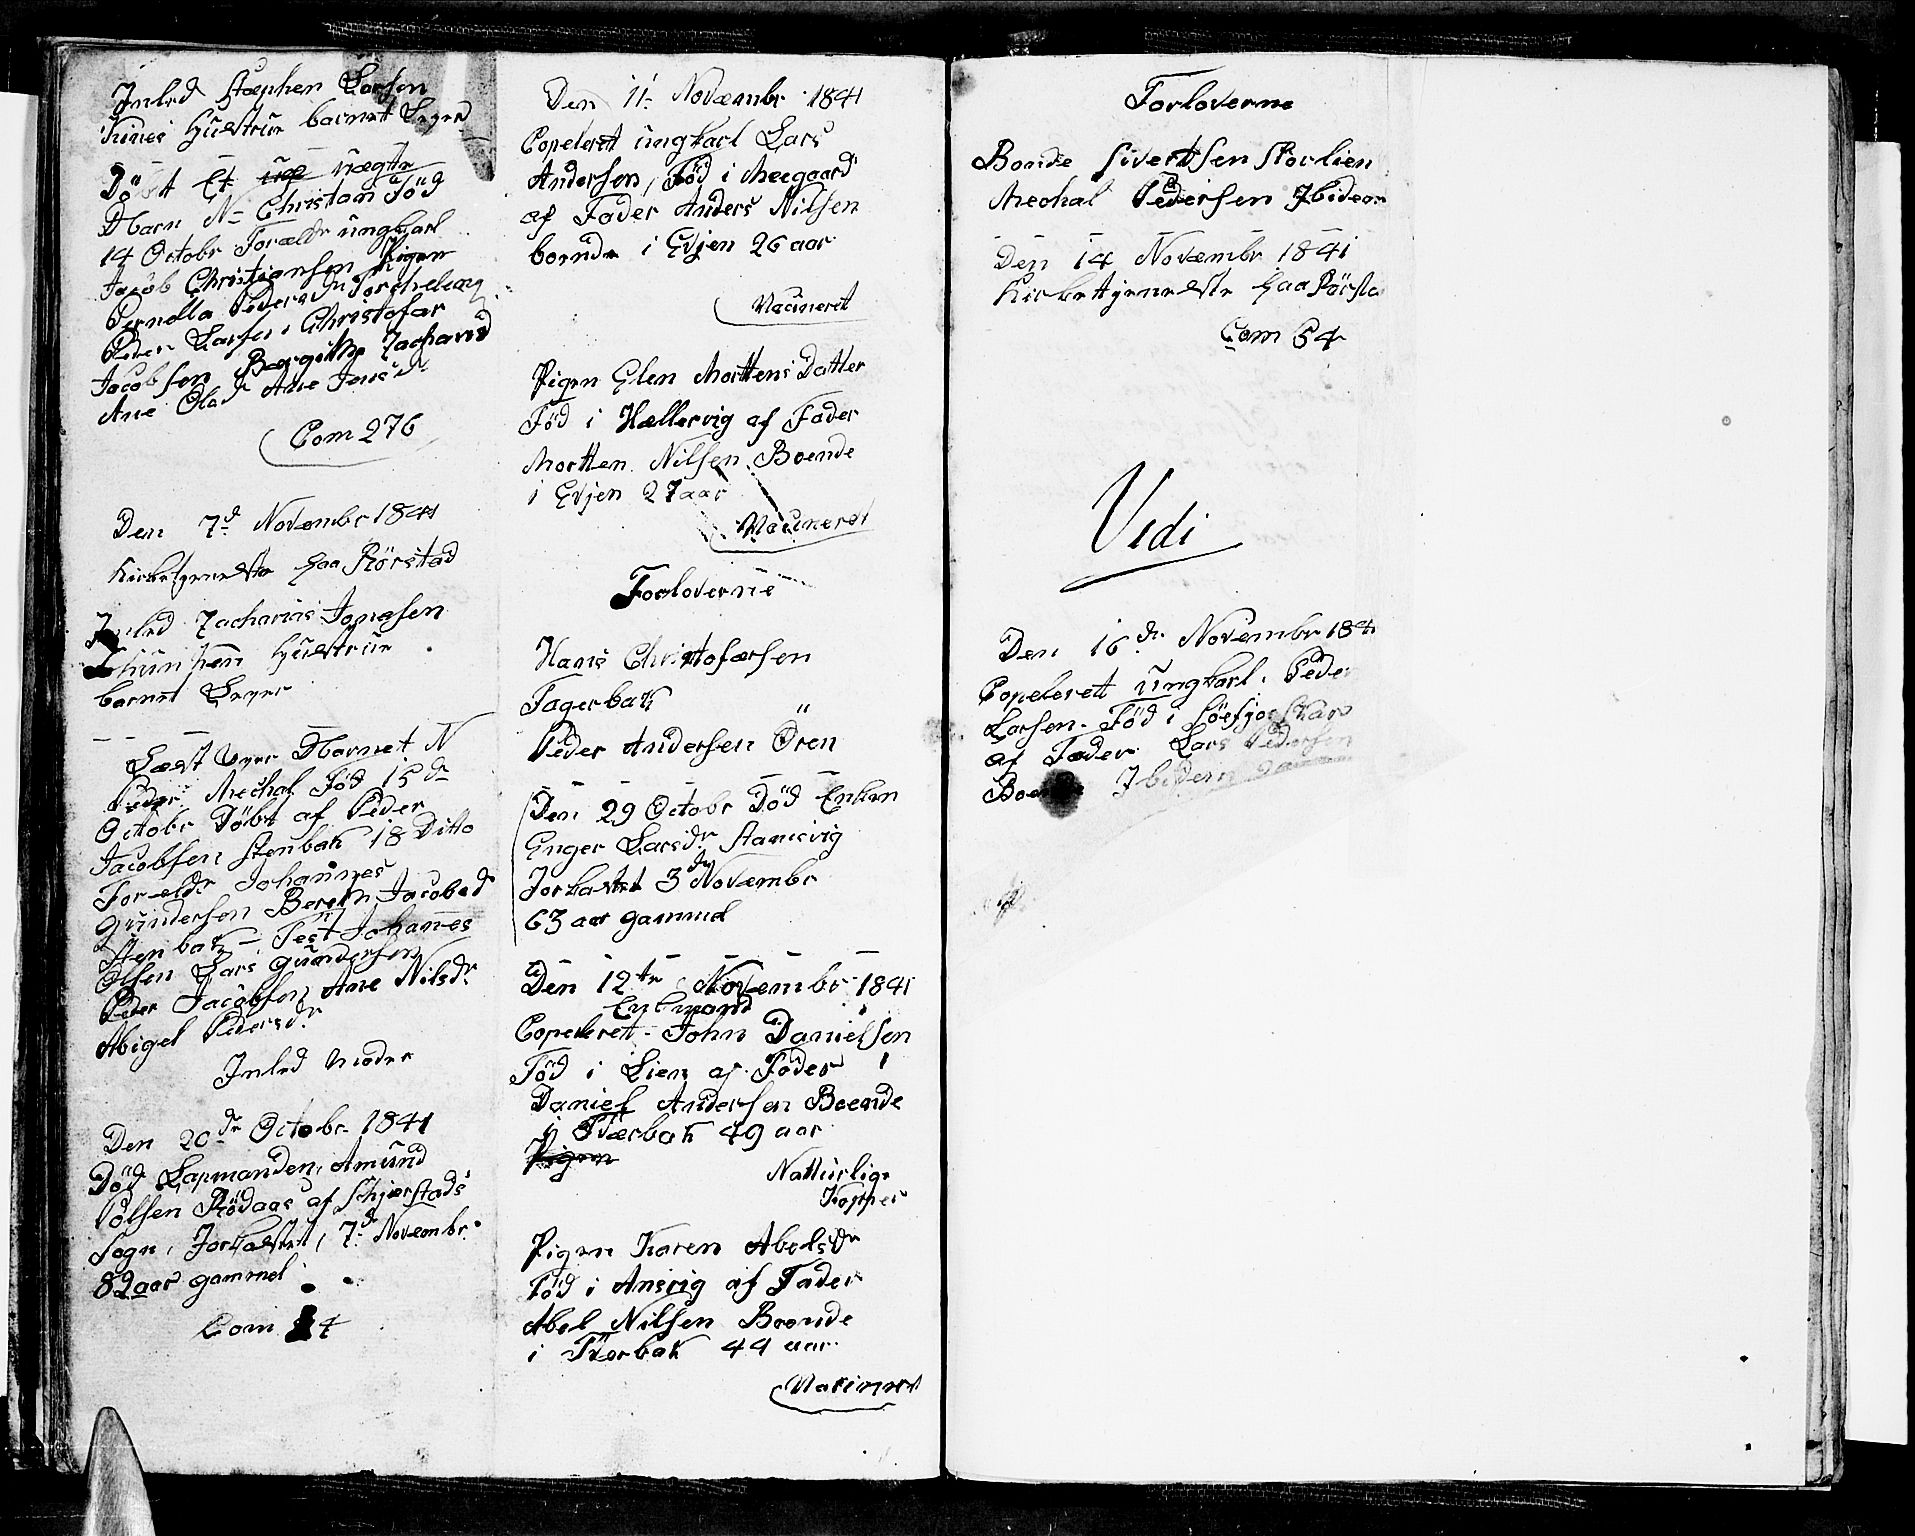 Inled Stæphen Larsen
Kines Hustrue barnet Lever
Døbt Et uægte
Barn N= Christan Fød
14 Octobr Forældr ungkarl
Jacob Christiansen Pigen
Pernella Peders dr
Peder Larsen Christofær
Jacobsen Zacharid
Ane Olad Ane Jens dr
Com 276
Den 7d Novembr 1841
Kirketjeneste paa Rørstad
Inled Zacharias Jonasen
Hustrue
barnet Lever
Læst over Barnet N
Peder Mechal Fød 15 dn
Octobr Døbt af Peder
Jacobsen Stenbak 18 Ditto
Foreldr Johannes
Gundersen Bereth Jacobsd
Stenbak = Test Johannes
Olsen Lars Gundersen
Peder Jacobsen Ane Nilsdr
Abigel Pedersdr
Inled Moder
Den 20 dn Octobr 1841
Død Lapmanden, Amund
Polsen Rødaas af Schjerstads
Sogn, Jorkastet, 7d Novembr
82 aar gammel
Com 4
Den 11= Novæmbr 1841
Copeleret ungkarl Lars
Andersen, Fød i Meegaard
af Fader Anders Nilsen
boende i Evjen 26 aar
Vacineret
Pigen Elen Morttens Datter
Fød i Hællervig af Fader
Mortten Nilsen Boende
i Evjen 27 aar
Vacineret
Forloverne
Hans Christofærsen
Fagerbak
Peder Andersen Øren
Den 29 Octobr Død Enken
Enger Larsdr Stamsvig
Jorkastet 3 dn Novæmbr
63 aar gammel
Den 12te Novembr 1841
Enkmand
Copeleret - John Danielsen
Fød i Lien af Fader
Daniel Andersen Boende
i Tværbak 49 aar
Pigen
Natturlige
Kopper
Pigen Karen Abelsdr
Fød i Ansvig af Fader
Abel Nilsen Boende
i Tverbak 44 aar
Vacineret
Forloverne
Bonde Sivertsen Storlien
Mechal Pedersen Ibidem
Den 14 Novæmbr 1841
Kirkettjeneste paa Rørsta
Com 54
Vidi
Den 16 dn Novembr 184
Copeleret ungkarl Peder
Larsen Fød i
af Fader Lars Pedersen
Boende Ibidem